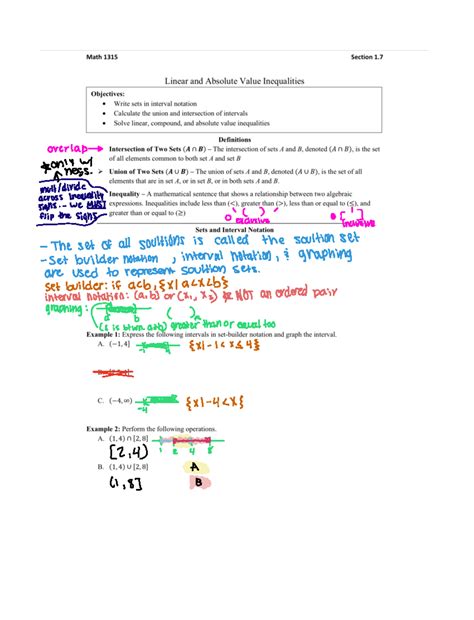 Math 1315 Section 1.7
Linear and Absolute Value Inequalities
Objectives:
• Write sets in interval notation
• Calculate the union and intersection of intervals
• Solve linear, compound, and absolute value inequalities
Definitions
overlap → Intersection of Two Sets (A ∩ B) – The intersection of sets A and B, denoted (A ∩ B), is the set
of all elements common to both set A and set B
*only w/
ness.
➢ Union of Two Sets (A ∪ B) – The union of sets A and B, denoted (A ∪ B), is the set of all
elements that are in set A, or in set B, or in both sets A and B.
mult/divide
across inequality
signs... we MUST
flip the signs
Inequality – A mathematical sentence that shows a relationship between two algebraic
expressions. Inequalities include less than (<), greater than (>), less than or equal to (≤), and
greater than or equal to (≥)
( )
[ ]
inclusive
Sets and Interval Notation
- The set of all soultions is called the soultion set
- Set builder notation, interval notation, & graphing
are used to represent soultion sets.
set builder: if a<b, {x|a<x<b}
interval notation: (a,b) or (x₁, x₂) NOT an ordered pair
graphing: ( )
(t is btwn a+b) greater than or equal too
Example 1: Express the following intervals in set-builder notation and graph the interval.
A. (−1,4] {x|-1<x≤4}
C. (−4,∞) -4 {x|-4<x}
Example 2: Perform the following operations.
A. (1,4) ∩ [2,8] 1 2 4 8
[2,4)
A
B. (1,4) ∪ [2,8]
(1,8]
B